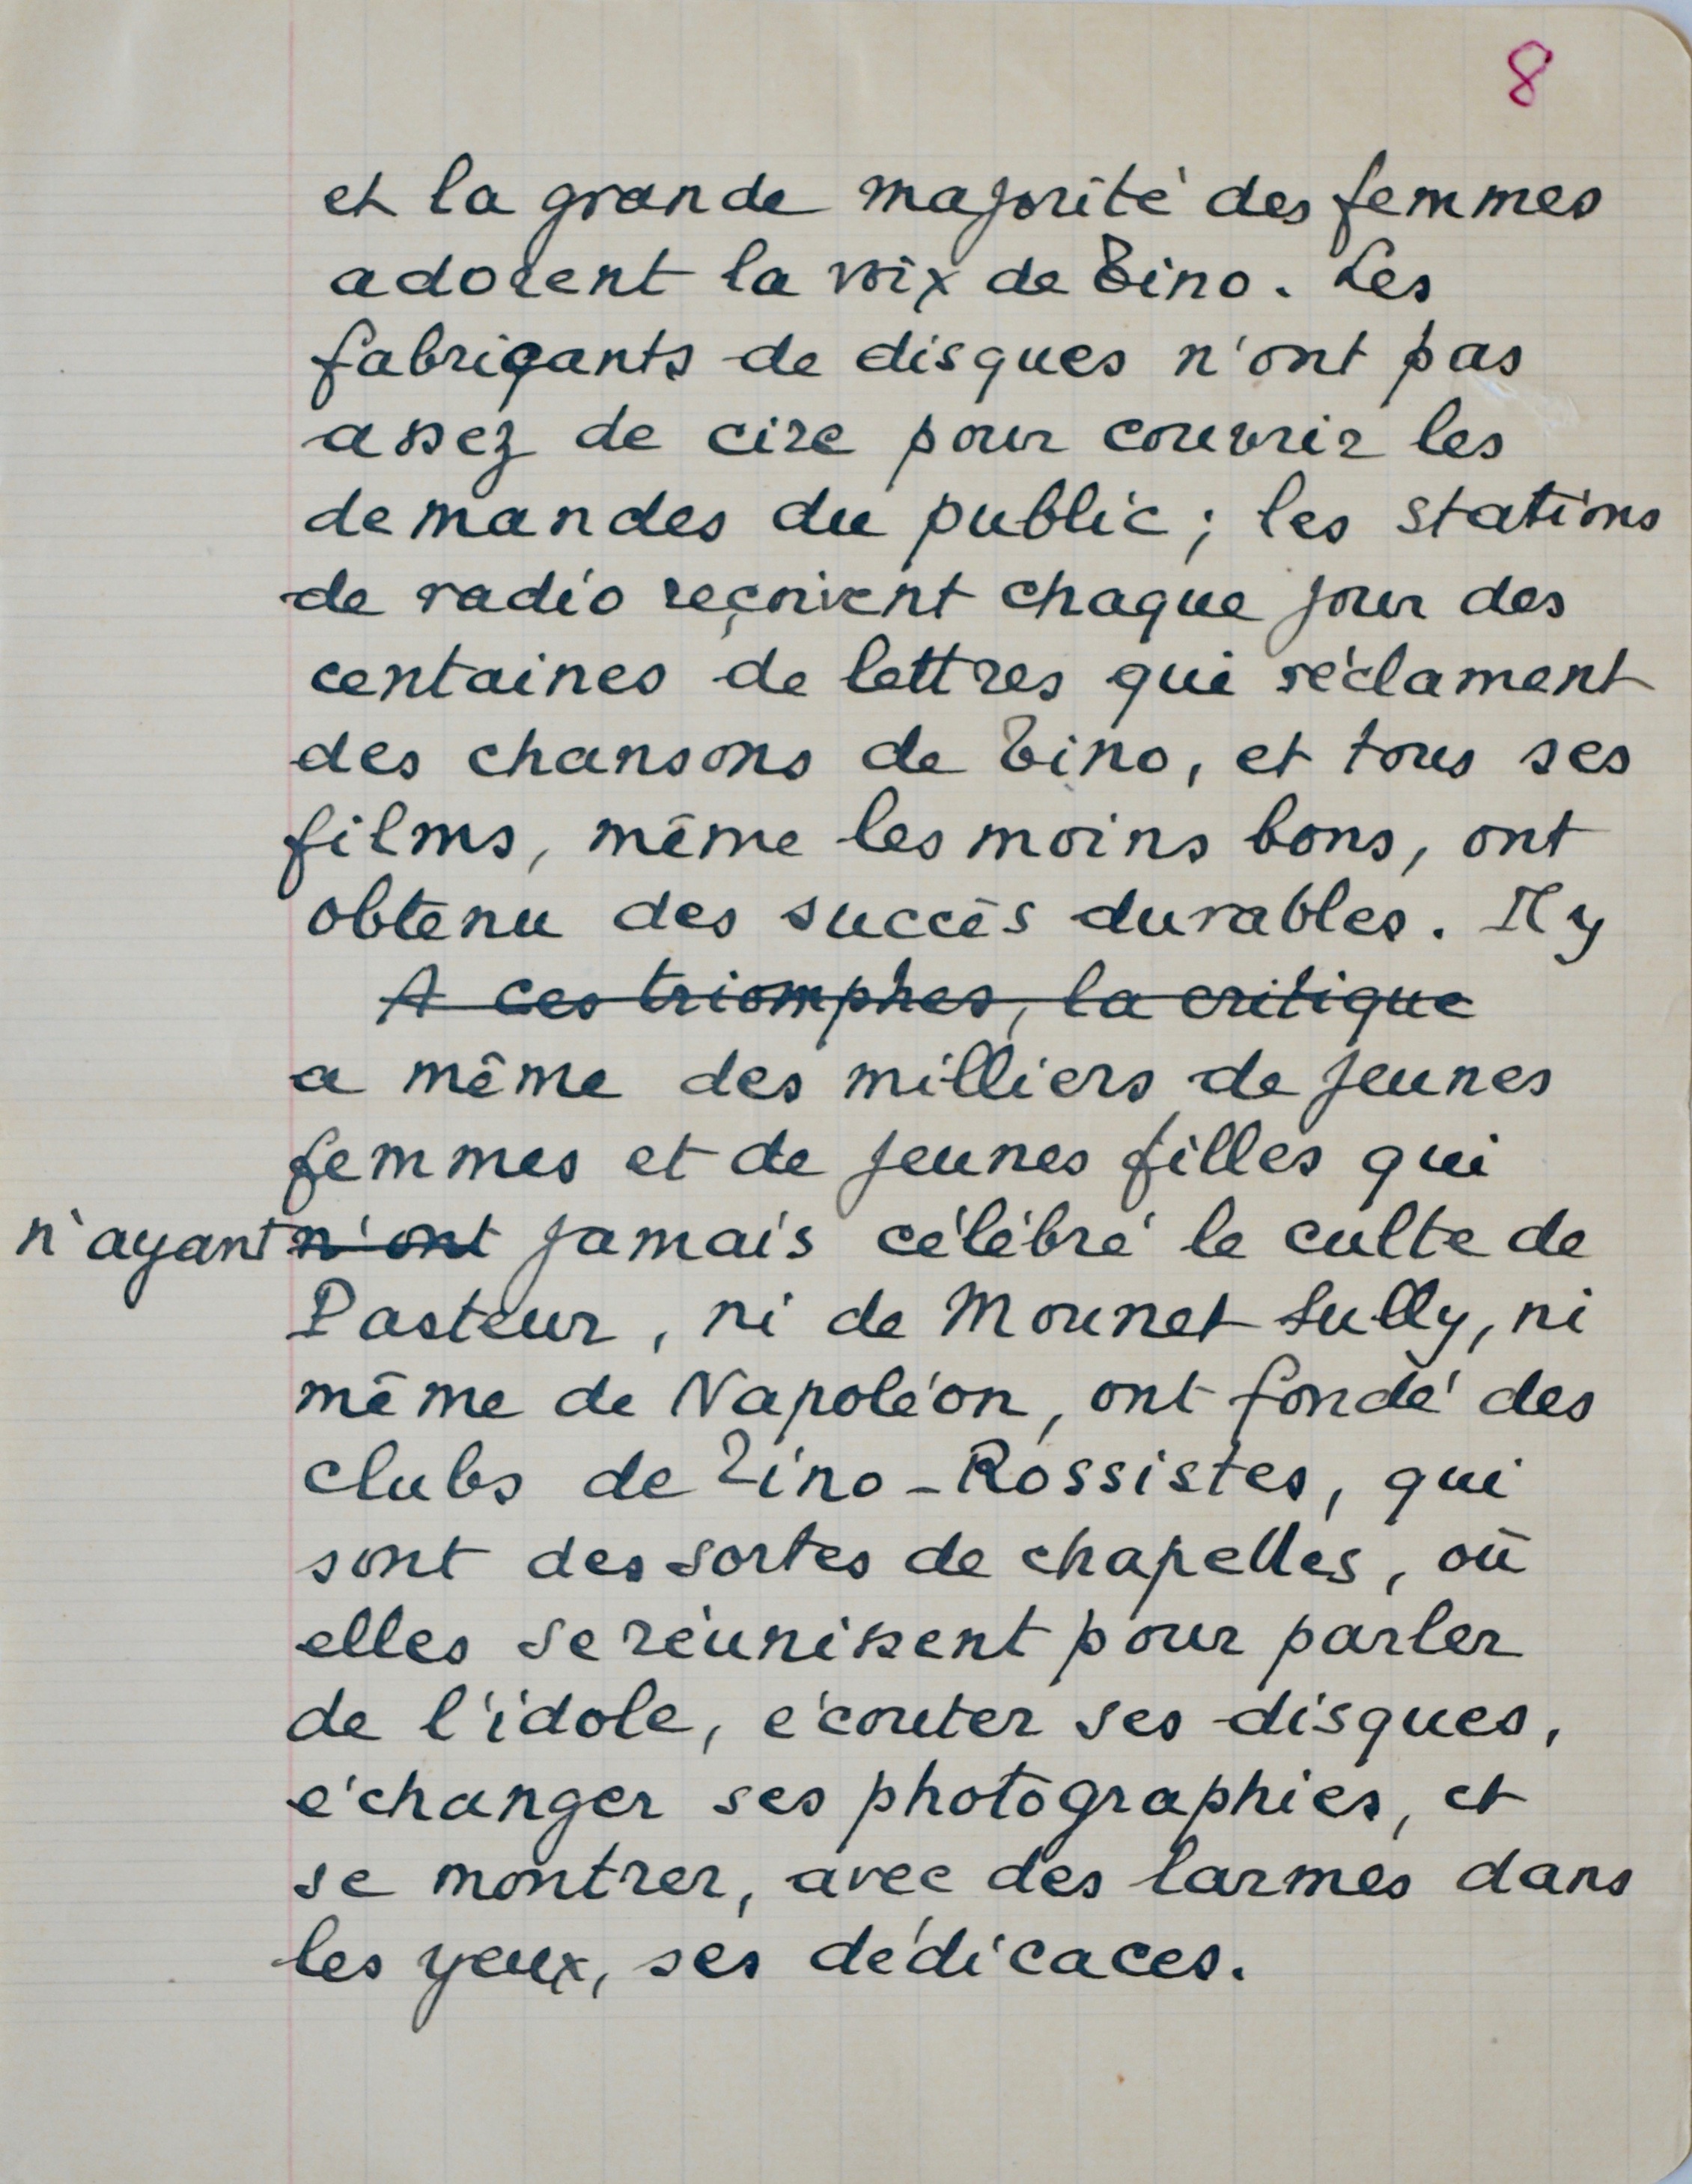 8
et la grande majorité des femmes
adorent la voix de Tino. Les
fabriquants de disques n'ont pas
assez de cire pour couvrir les
demandes du public ; les stations
de radio reçoivent chaque jour des
centaines de lettres qui réclament
des chansons de Tino, et tous ses
films, même les moins bons, ont
obtenu des succès durables. Il y
A ces triomphes, la critique
a même des milliers de jeunes
femmes et de jeunes filles qui
n'ayant n'ont jamais célébré le culte de
Pasteur, ni de Mounet Sully, ni
même de Napoléon, ont fondé des
clubs de Tino-Rossistes, qui
sont des sortes de chapelles, où
elles se réunissent pour parler
de l'idole, écouter ses disques,
échanger ses photographies, et
se montrer, avec des larmes dans
les yeux, ses dédicaces.